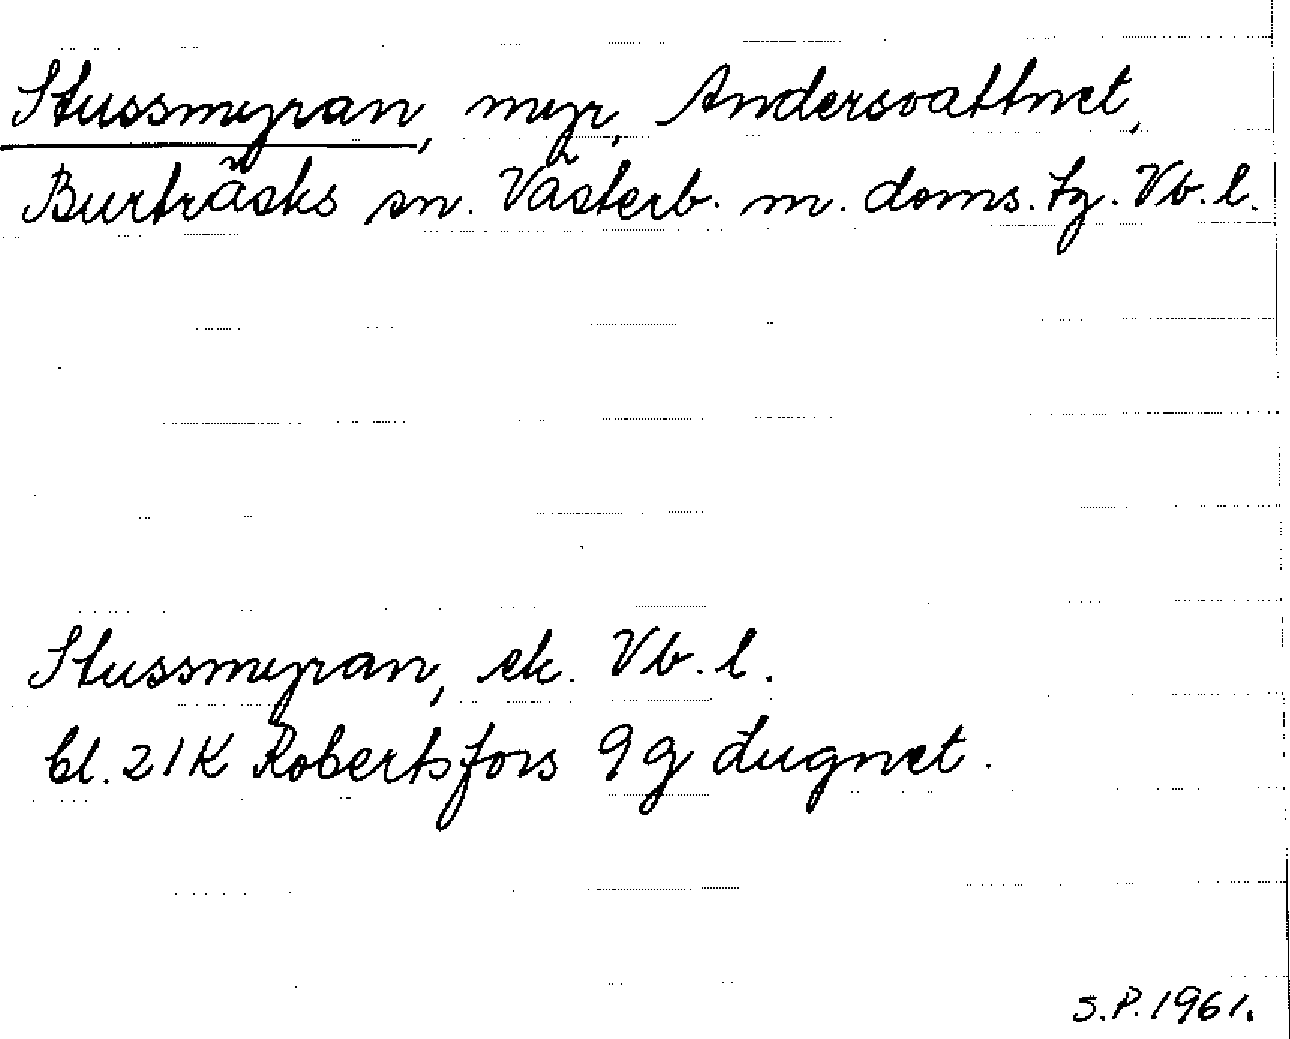 Stussmyran, myr, Andersvattnet,
Burträsks sn. Västerb. m. doms. tg. Vb. l.
Stussmyran, ek. Vb. l.
bl. 21K Robertsfors 9g Lugnet.
S.P. 1961.